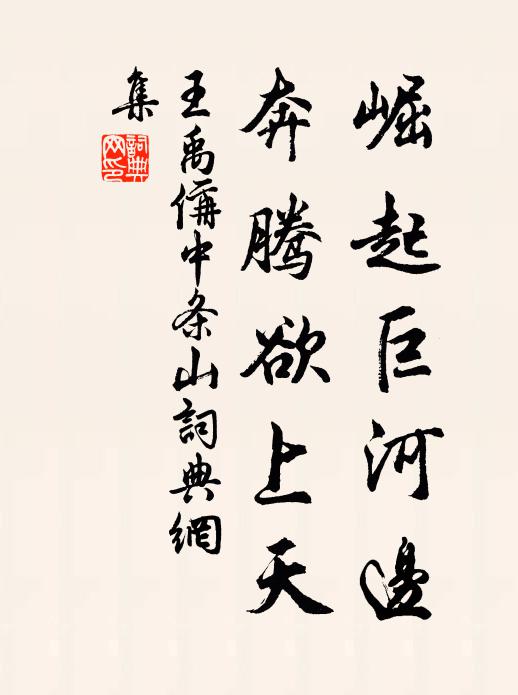 崛起巨河邊
奔騰欲上天
王禹偁中条山詞典網
集
詞典网印